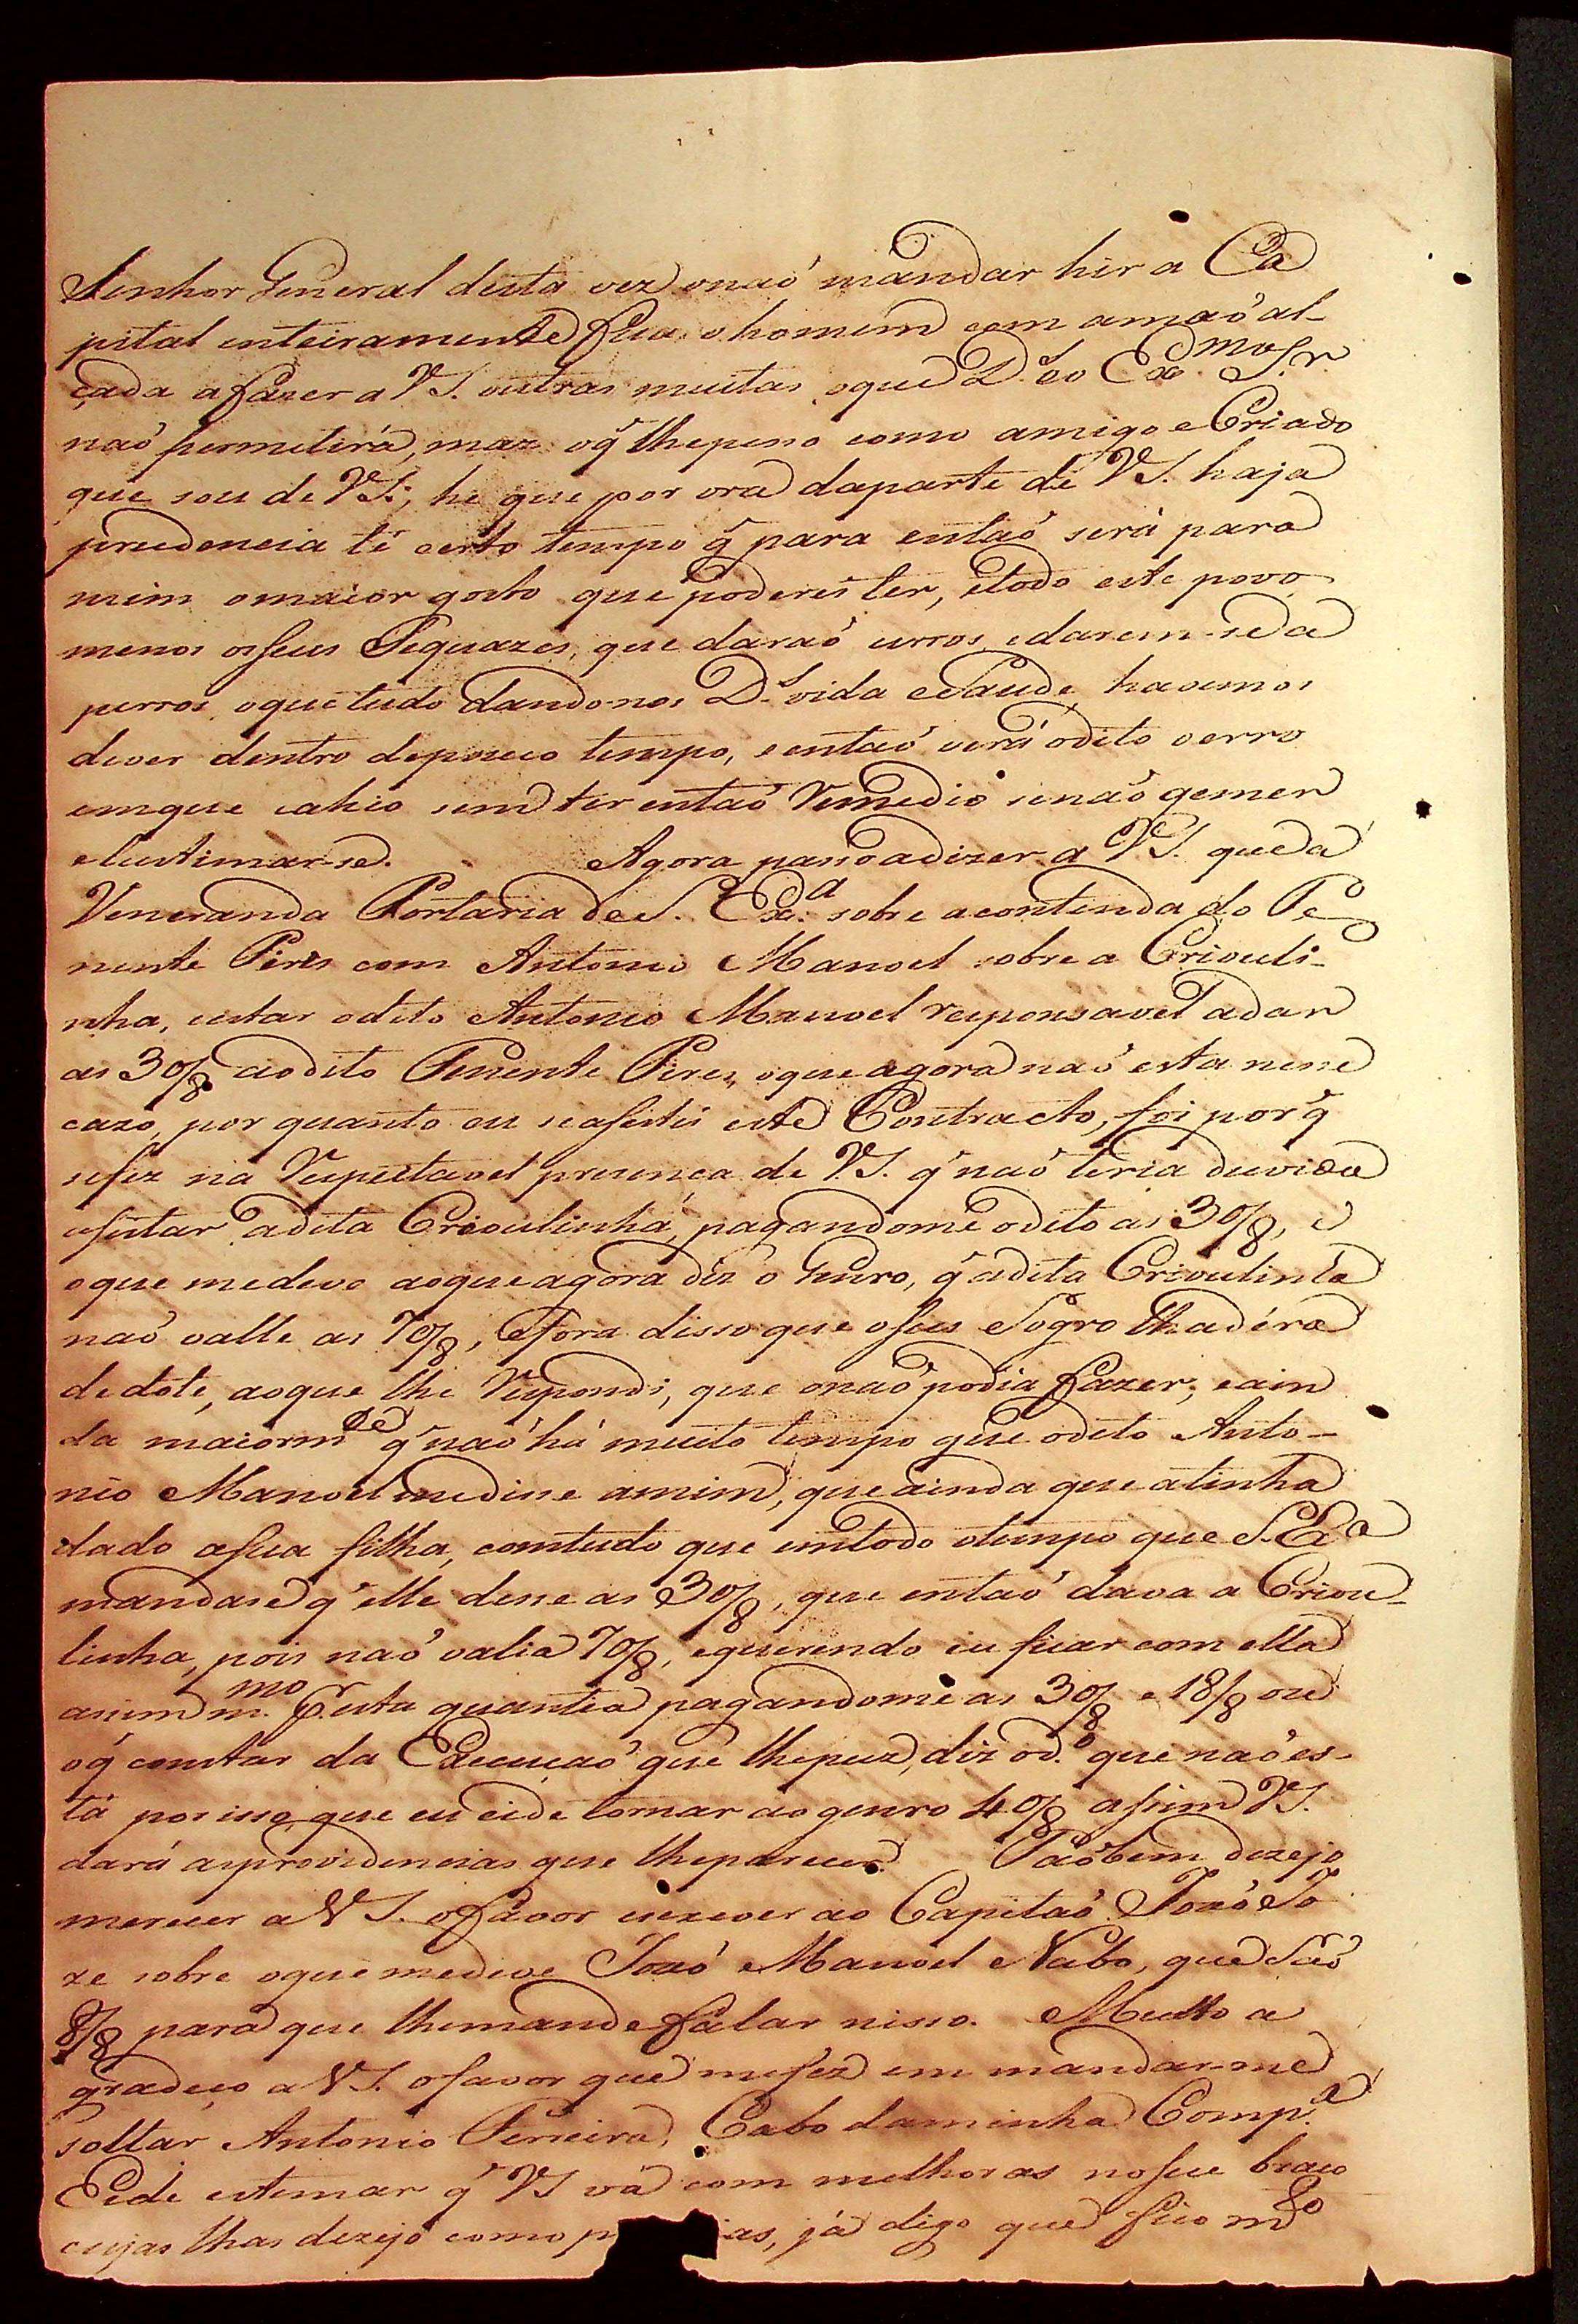 Senhor General desta vez onaõ mandar hir a Ca
pital enteiramente fica o homem com amaõ al-
çada afazer a VS. outras muitas, oque D.s eo Ex.mo S.r
naõ permitirá, maz oq̃ lhepesso como amigo e Criado
que sou de VS., he que por ora daparte de VS. haja
prudencia té certo tempo q̃ para entaõ será para
mim omaior gosto que poderei ter, etodo este povo,
menos osseus Sequazes, que daraõ urros, edarem-se a
perros, oque tudo dandonos D.s vida eSaude, havemos
dever dentro depouco tempo, eentaõ verá odito oerro
emque cahio sem ter entaõ Remedio senaõ gemer
elastimarse. Agora passo adizer a VS. que a
Veneranda Portaria de S. Ex.a sobre acontenda do Te
nente Pires com Antonio Manoel sobre a Criouli-
nha, estar odito Antonio Manoel responsavel adar
as 30/8 aodito Tenente Pires, oque agora naõ esta nesse
cazo, por quanto eu seafeitei este Contracto, foi por q̃
sefez na Respeitavel presença de VS. q̃ naõ teria duvida
afeitar adita Crioulinha, pagandome odito as 30/8, e
oque medeve aoque agora diz o Genro, q̃ adita Crioulinha
naõ valle as 70/8, efora disso que oseu Sogro lhadéra
dedote, aoque lhe Respondi, que onaõ podia fazer, eain
da maiorm.te q̃ naõ há muito tempo que odito Anto-
nio Manoel medisse amim, que ainda que atinha
dado asua filha, comtudo que emtodo otempo que S.Ex.a
mandase q̃ elle desse as 30/8, que entaõ dava a Criou-
linha, pois naõ valia 70/8, equerendo eu ficar com ella
assim m.mo p.r esta quantia pagandome as 30/8 e 18/8 ou
oq̃ constar da Execuçaõ que lhepuz, diz od.o que naõ es-
tá por isso, que eu eide tornar ao genro 40/8 assim VS.
dará asprovidencias que lheparecer. Taõbem dezejo
merecer a VS. ofavor escrever ao Capitaõ Joaõ Jo
ze sobre oque medeve Joaõ Manoel Nabo, que Saõ
8/8 para que lhemande falar nisso. Muito a
gradeço a VS. ofavor que mefez em mandar-me
soltar Antonio Ferreira, Cabo daminha Comp.a
Eide estimar q̃ VS vá com melhoras noseu braço
cujas lhas dezejo como p ias, já digo que fico m.to